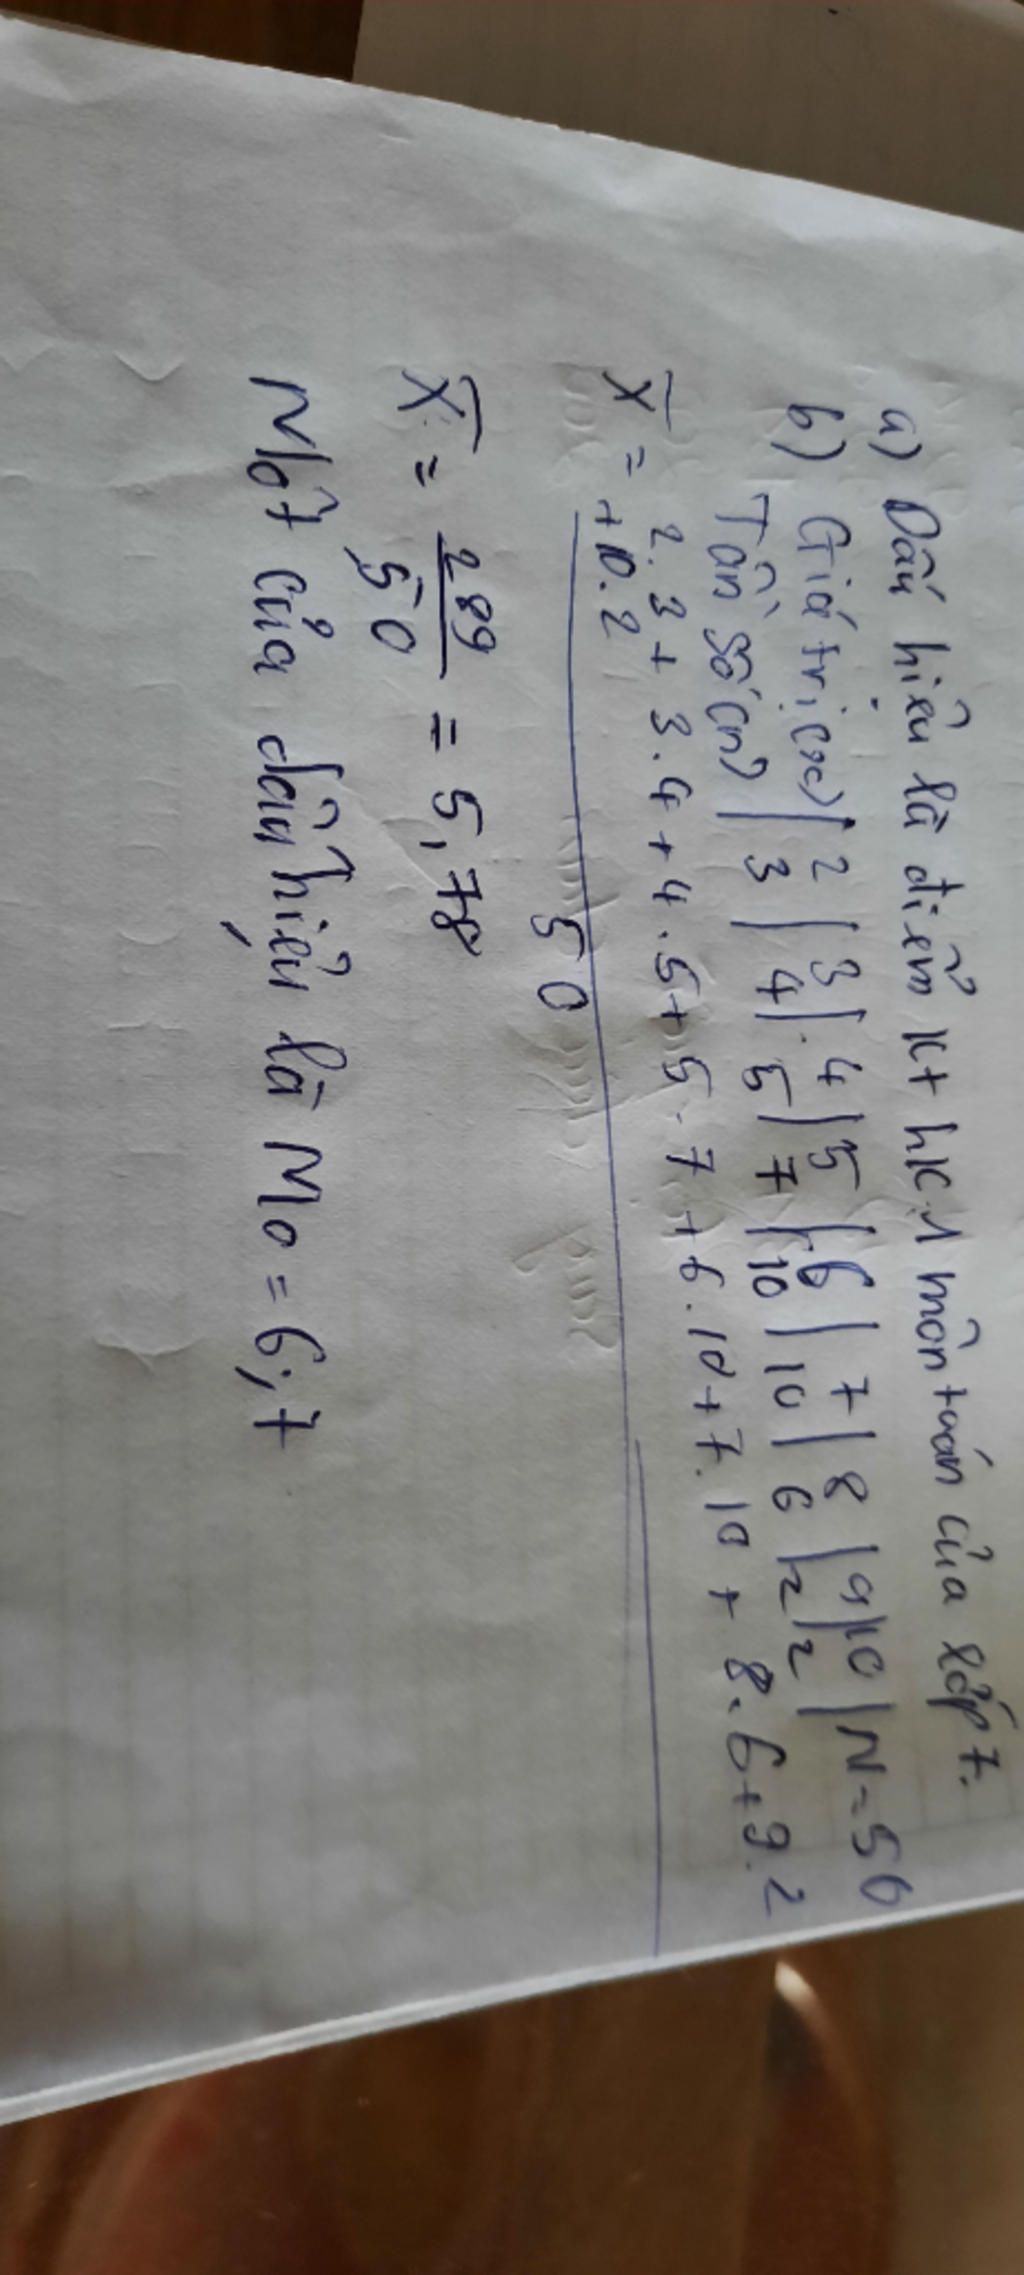 a) Dấu hiệu là điểm kt hk1 môn toán của lớp 7.
b) Giá trị (x) | 2 | 3 | 4 | 5 | 6 | 7 | 8 | 9 | 10 | N = 50
Tần số (n) | 3 | 4 | 5 | 7 | 10 | 10 | 6 | 2 | 2 |
X = 2.3 + 3.4 + 4.5 + 5.7 + 6.10 + 7.10 + 8.6 + 9.2
+ 10.2
50
X = 289
50
= 5,78
Mốt của dấu hiệu là Mo = 6;7